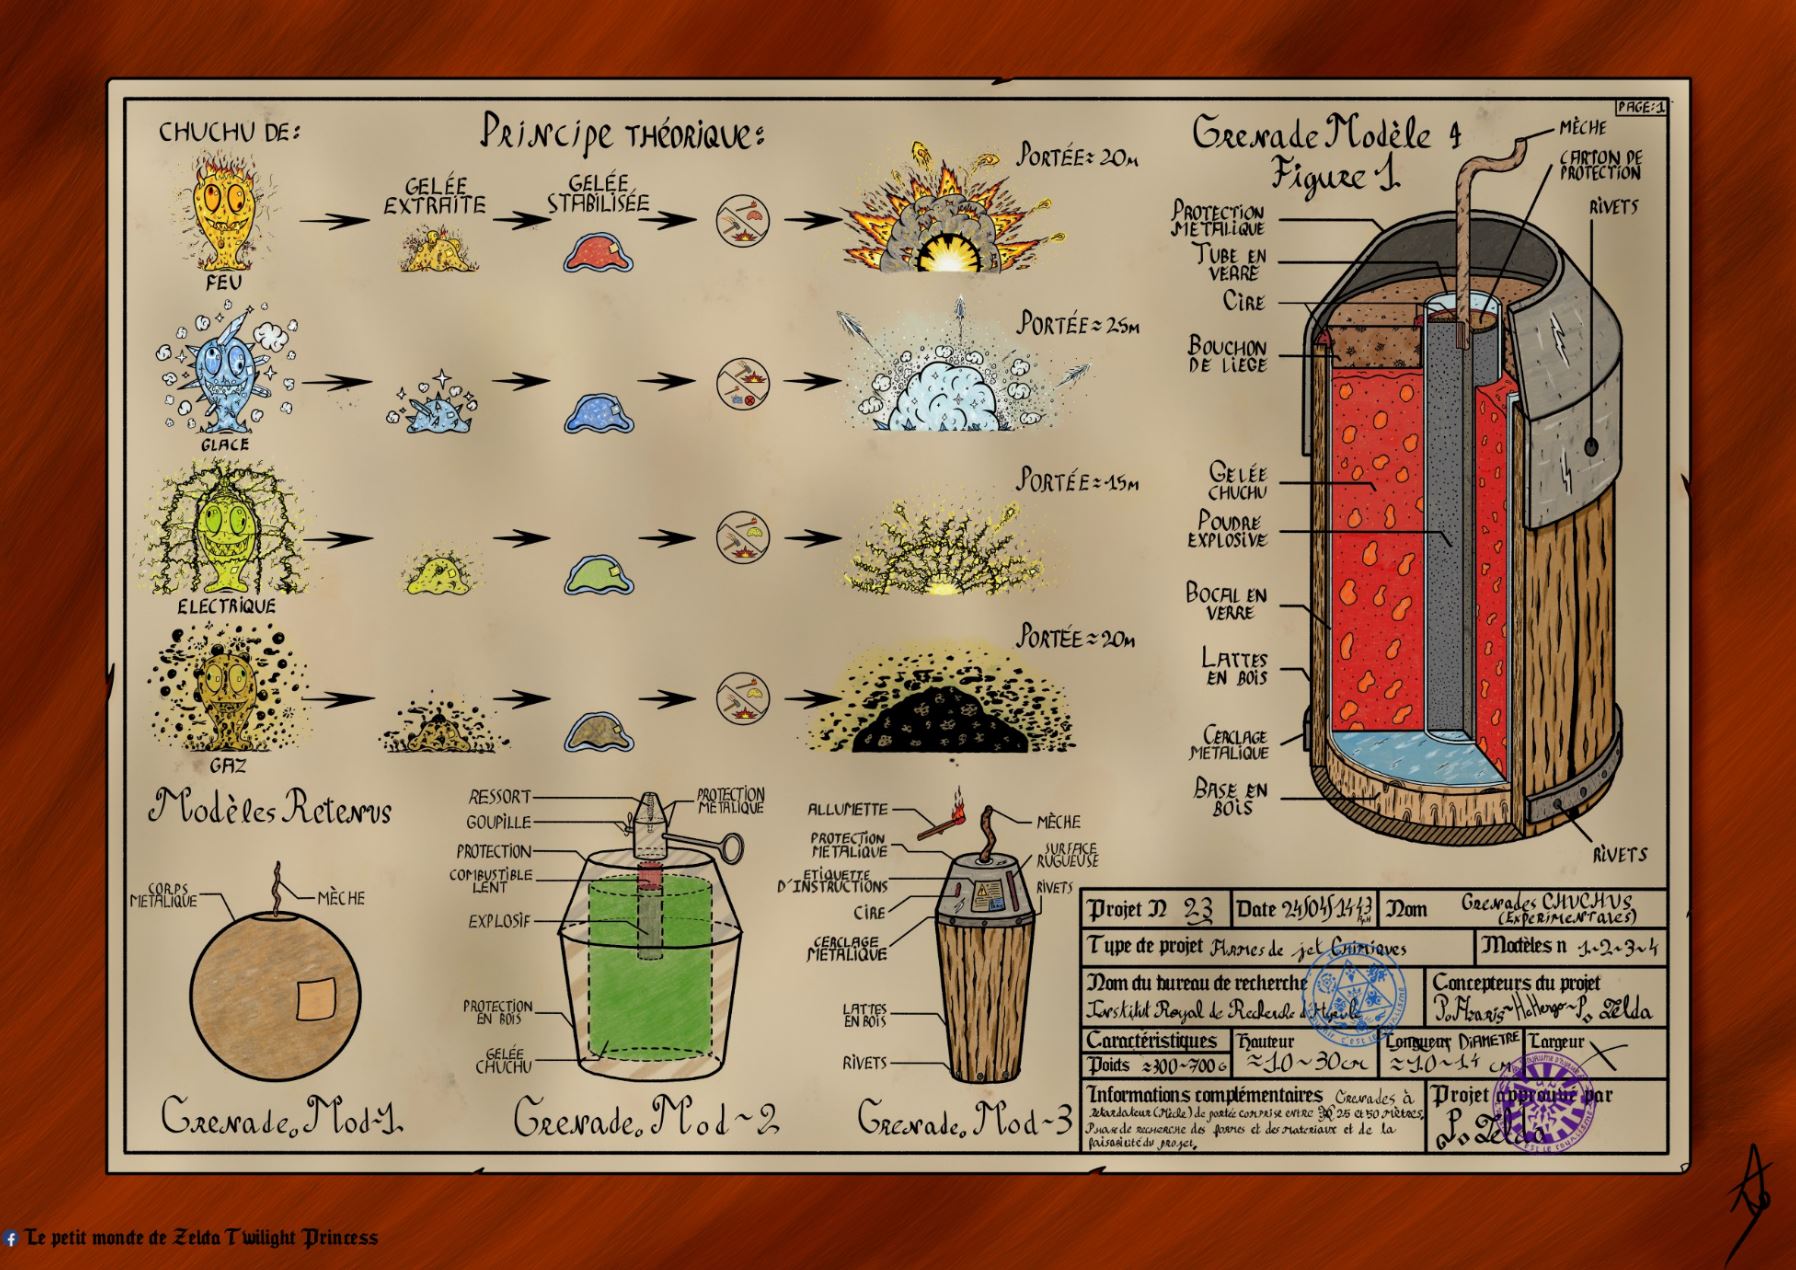 PAGE:1
CHUCHU DE:
PRINCIPE THÉORIQUE:
GELÉE
EXTRAITE
GELÉE
STABILISÉE
PORTÉE≈20M
FEU
PORTÉE≈25M
GLACE
PORTÉE≈15M
ELECTRIQUE
PORTÉE≈20M
GAZ
Grenade Modèle 4
Figure 1
MÈCHE
CARTON DE
PROTECTION
RIVETS
PROTECTION
METALIQUE
TUBE EN
VERRE
CIRE
BOUCHON
DE LIEGE
GELÉE
CHUCHU
POUDRE
EXPLOSIVE
BOCAL EN
VERRE
LATTES
EN BOIS
CERCLAGE
METALIQUE
BASE EN
BOIS
RIVETS
Modèles Retenus
CORPS
METALIQUE
MÈCHE
Grenade. Mod~1
RESSORT
GOUPILLE
PROTECTION
METALIQUE
PROTECTION
COMBUSTIBLE
LENT
EXPLOSIF
PROTECTION
EN BOIS
GELÉE
CHUCHU
Grenade. Mod~2
ALLUMETTE
MÈCHE
PROTECTION
METALIQUE
SURFACE
RUGUEUSE
ETIQUETTE
D'INSTRUCTIONS
RIVETS
CIRE
CERCLAGE
METALIQUE
LATTES
EN BOIS
RIVETS
Grenade. Mod~3
Projet N 23
Date 24/04/1443
Nom Grenades CHUCHUS
(EXPERIMENTALES)
Type de projet Armes de jet Chimiques
Modèles n 1~2~3~4
Nom du bureau de recherche
Institut Royal de Recherche d'Hyrule
Concepteurs du projet
P. Zelda
Caractéristiques
Poids ≈300~700G
Hauteur
≈10~30cm
Longueur DIAMETRE
≈10~14 cm
Largeur
Informations complémentaires Grenades à
retardateur (Mèche) de portée comprise entre 25 et 50 mètres.
Phase de recherche des formes et des materiaux et de la
faisabilité du projet.
Projet approuvé par
P. Zelda
Le petit monde de Zelda Twilight Princess